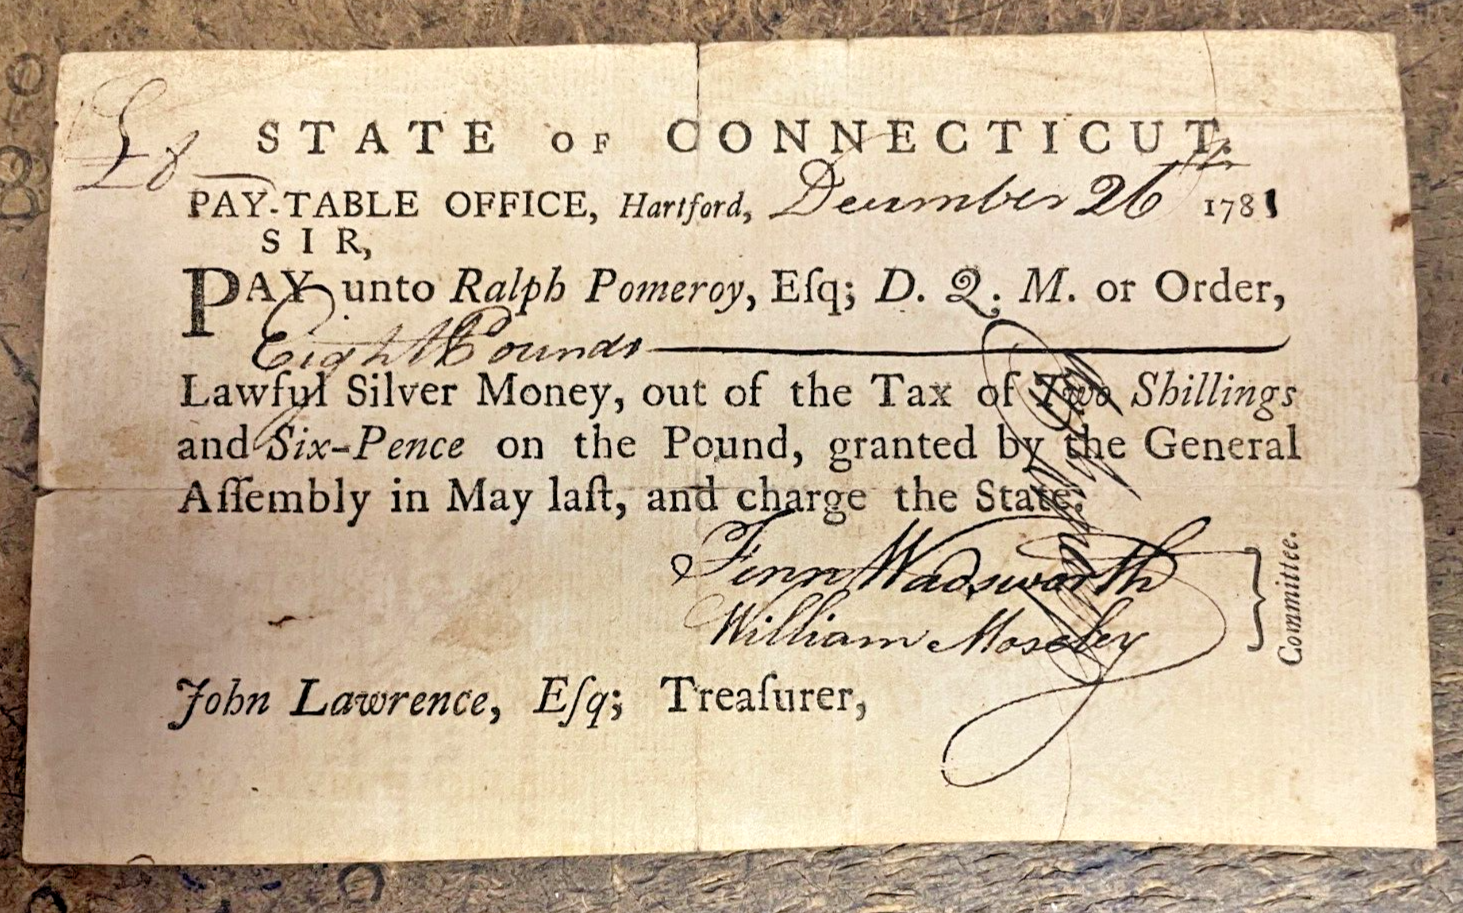 £8
STATE OF CONNECTICUT.
PAY-TABLE OFFICE, Hartford, December 26th 1781
SIR,
PAY unto Ralph Pomeroy, Eſq; D. Q. M. or Order,
Eight Pounds
Lawful Silver Money, out of the Tax of Two Shillings
and Six-Pence on the Pound, granted by the General
Aſſembly in May laſt, and charge the State.
Fenn Wadsworth
William Moseley
Committee.
John Lawrence, Eſq; Treaſurer,